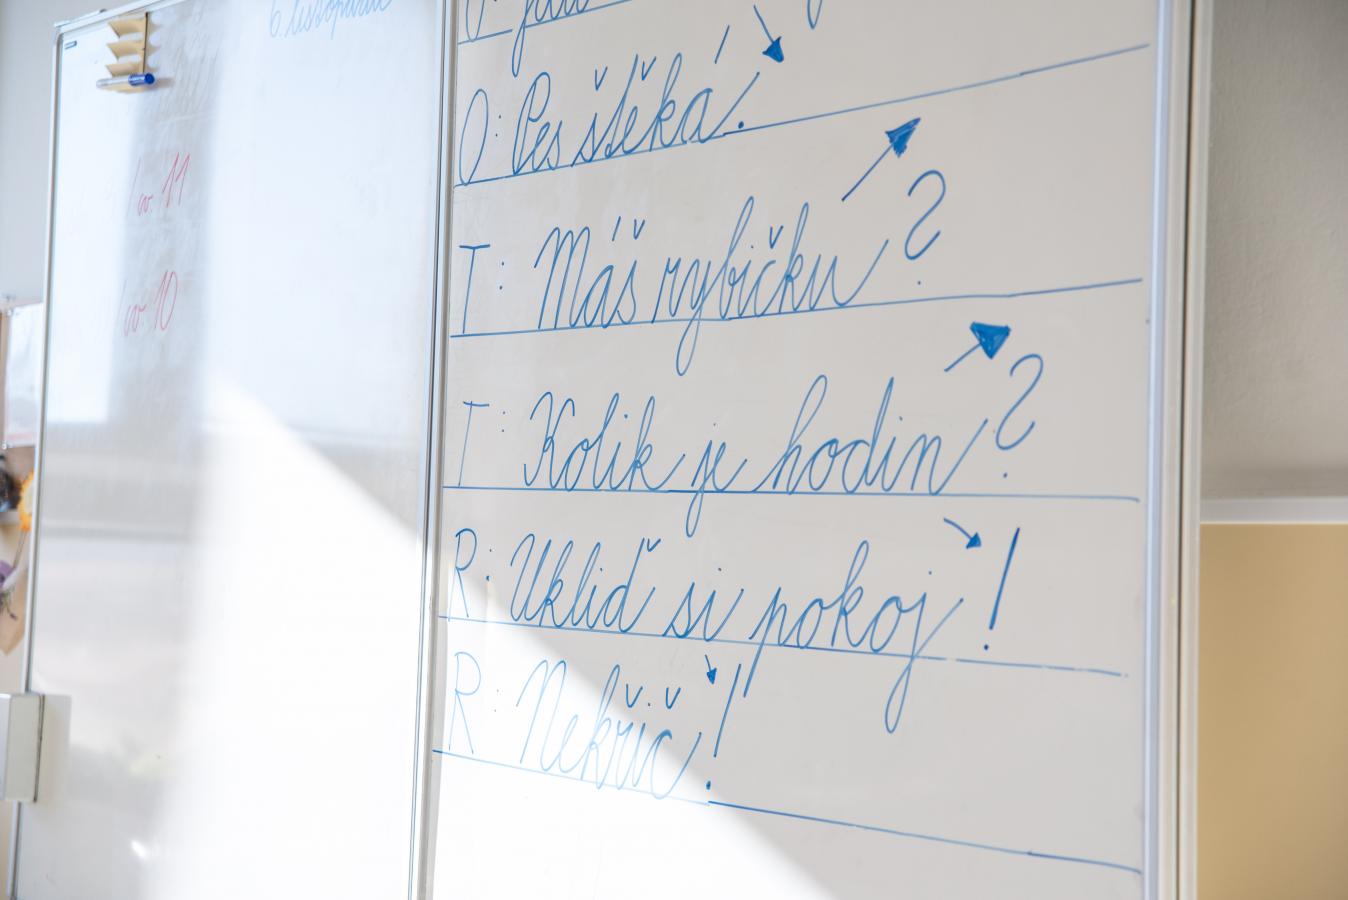 6. listopadu
cv. 11
cv. 10
O: Pes štěká.
T: Máš rybičku?
T: Kolik je hodin?
R: Ukliď si pokoj!
R: Nekřič!